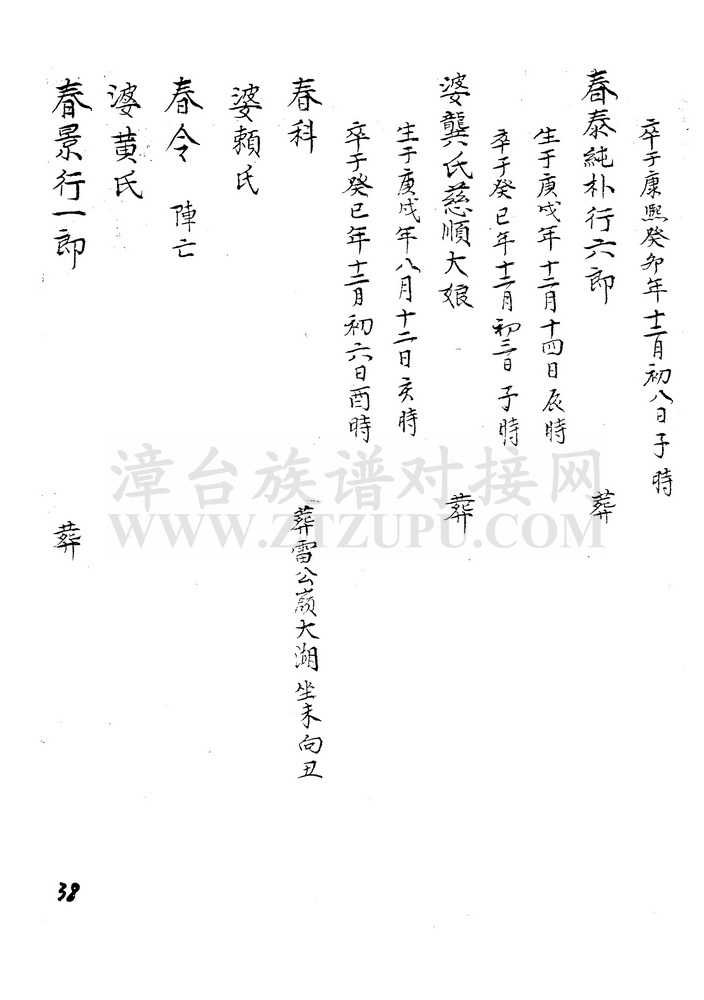 卒于康熙癸卯年十二月初八日子時
春泰純朴行六郎 葬
生于庚戌年十二月十四日辰時
卒于癸巳年十二月初三日子時
婆龔氏慈順大娘 葬
生于庚戌年八月十二日亥時
卒于癸巳年十二月初六日酉時
春科 葬雷公嶺大湖坐未向丑
婆賴氏
春令 陣亡
婆黄氏
春景行一郎 葬
38
漳台族谱对接网
WWW.ZTZUPU.COM